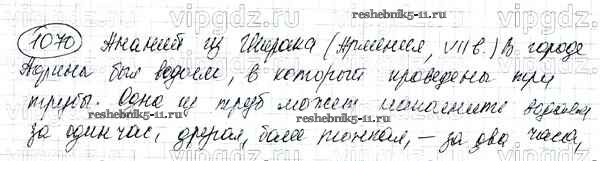 1070 Ананий из Ширака (Армения, VII в.) В городе
Афины был водоем, в который проведены три
трубы. Одна из труб может наполнить водоем
за один час, другая, более тонкая, – за два часа,
reshebnik5-11.ru
reshebnik5-11.ru
reshebnik5-11.ru
vipgdz.ru
vipgdz.ru
vipgdz.ru